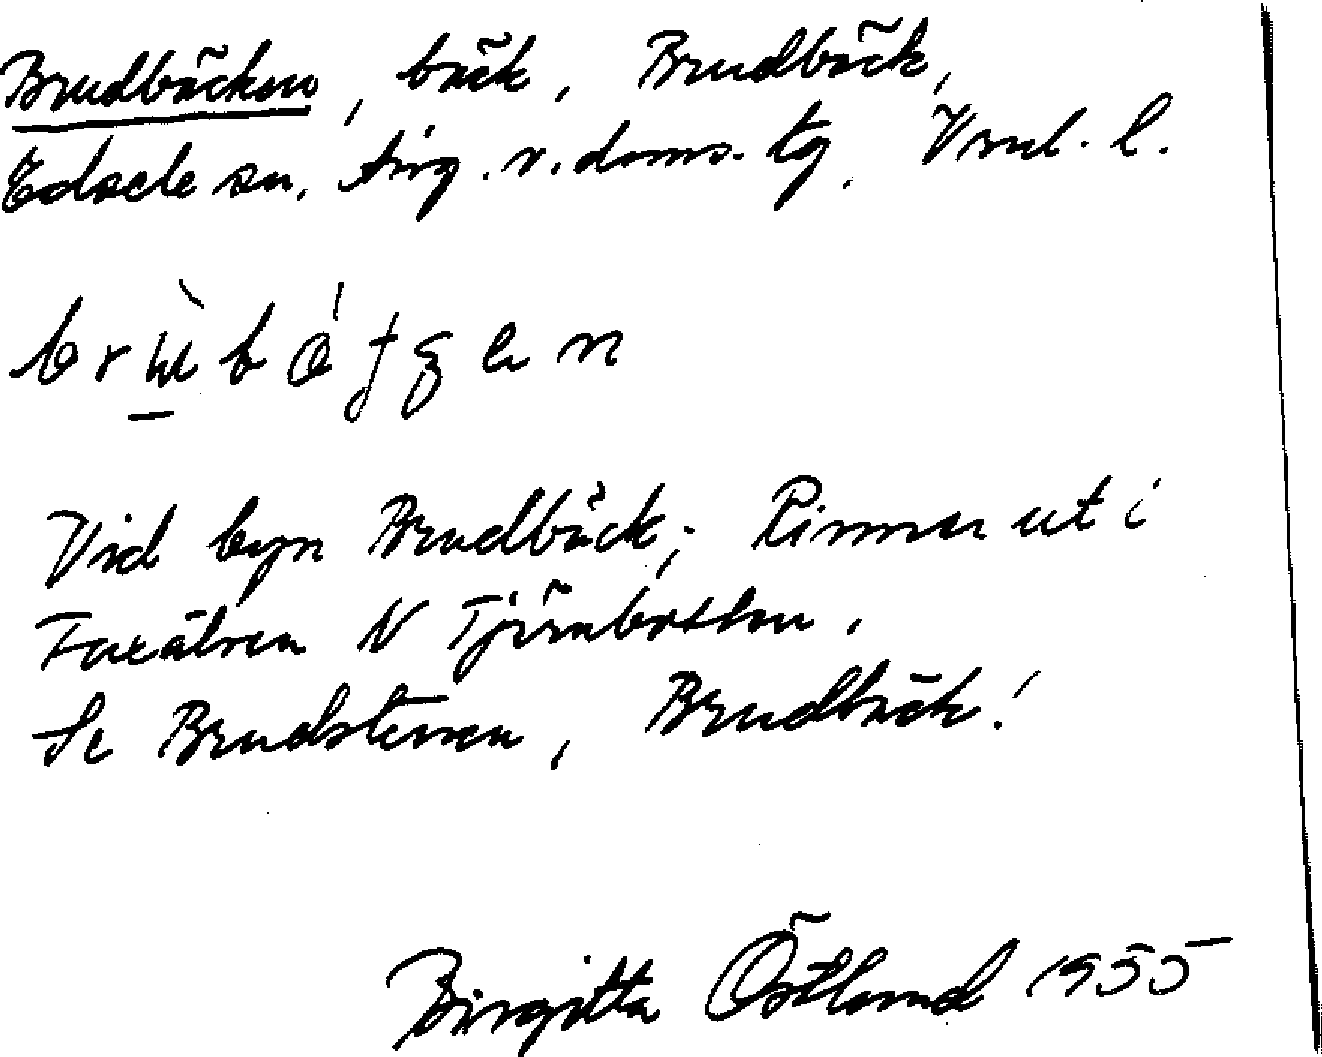 Brudbäcken, bäck, Brudbäck,
Edsele sn, Ång. v. doms. tg. Vnl. l.
Vid byn Brudbäck; Rinner ut i
Faxälven N Tjärnbotten.
Se Brudstenen, Brudbäck!
Birgitta Östlund 1955